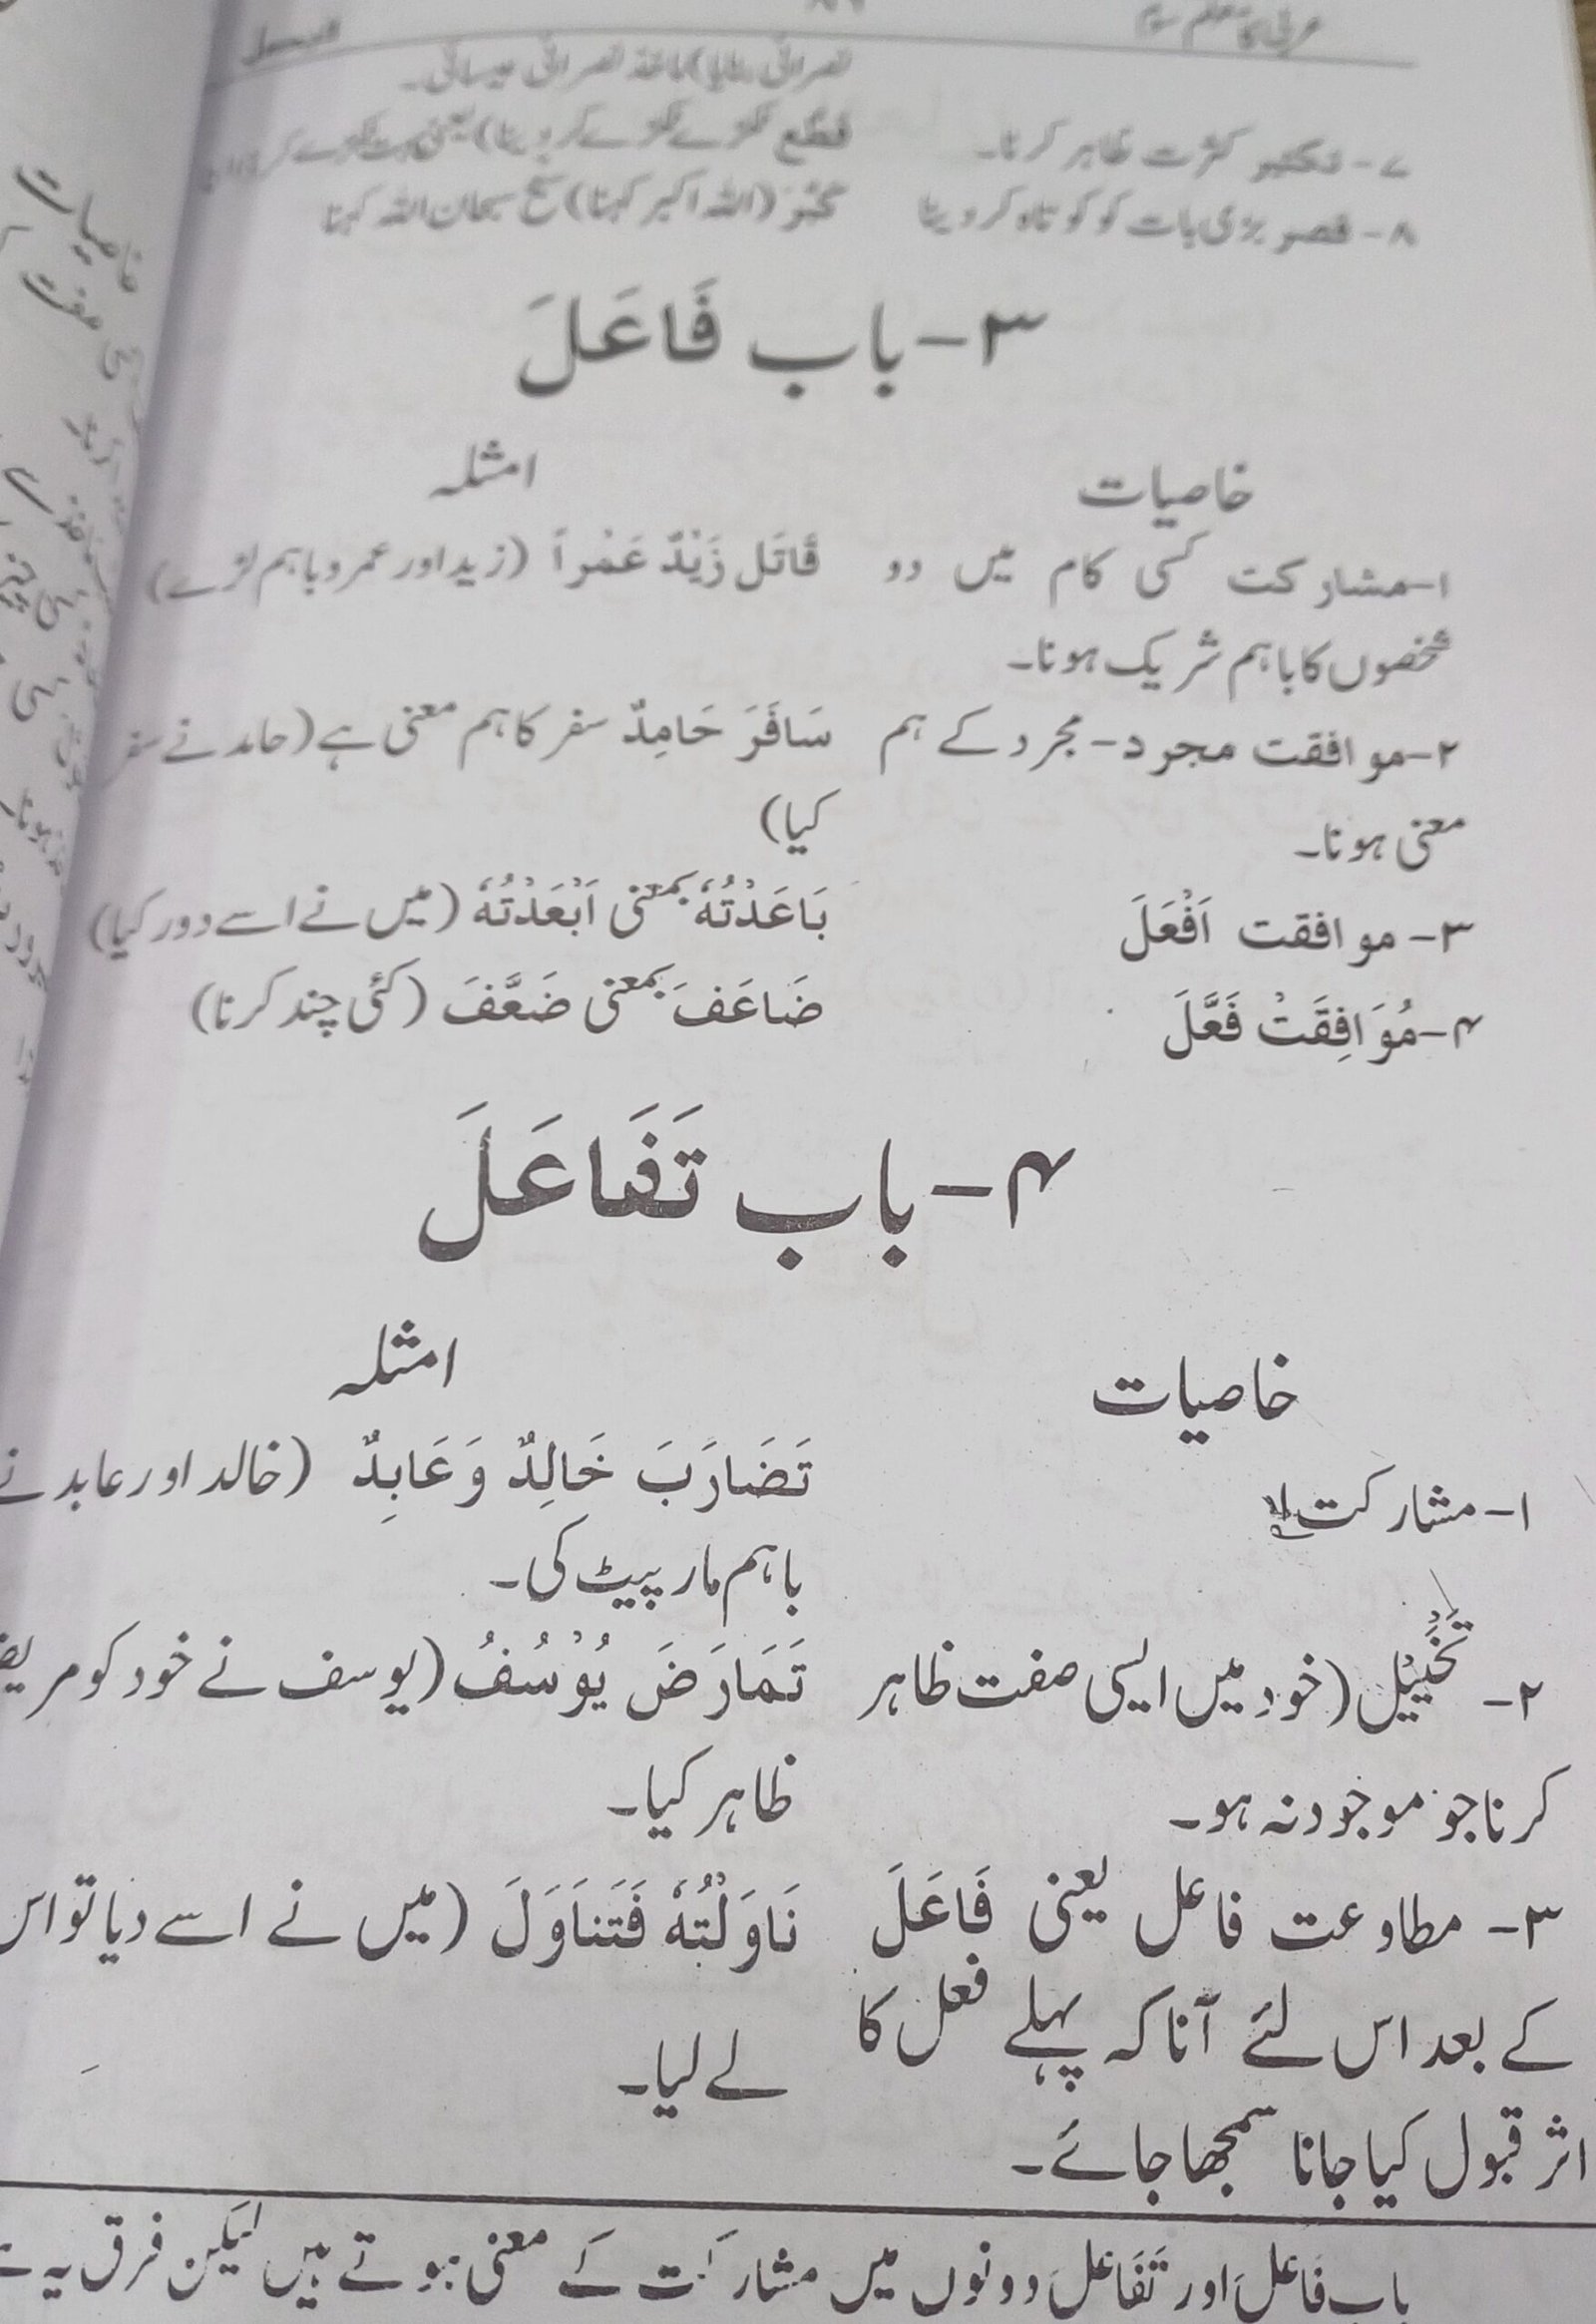 عربی کا معلم سوم
نصرانی بنایا) ماخذ نصرانی عیسائی۔
۷- تکثیر کثرت ظاہر کرنا۔ قطّع ٹکڑے ٹکڑے کر دینا) یعنی بہت ٹکڑے
۸- قصر بڑی بات کو کوتاہ کر دینا کبّر (اللہ اکبر کہنا) سبّح سبحان اللہ کہنا
۳- باب فَاعَلَ
خاصیات امثلہ
۱-مشارکت کسی کام میں دو قَاتَلَ زَيْدٌ عَمْراً (زید اور عمرو باہم لڑے)
شخصوں کا باہم شریک ہونا۔
۲-موافقت مجرد-مجرد کے ہم سَافَرَ حَامِدٌ سفر کا ہم معنی ہے (حامد نے سفر
معنی ہونا۔ کیا)
۳- موافقت اَفْعَلَ بَاعَدْتُهٗ بمعنی اَبْعَدْتُهٗ (میں نے اسے دور کیا)
۴-مُوَافِقَتْ فَعَّلَ ضَاعَفَ بمعنی ضَعَّفَ (کئی چند کرنا)
۴- باب تَفَاعَلَ
خاصیات امثلہ
۱-مشارکت تَضَارَبَ خَالِدٌ وَعَابِدٌ (خالد اور عابد نے
باہم مار پیٹ کی۔
۲- تَخْيِيْل (خود میں ایسی صفت ظاہر تَمَارَضَ يُوْسُفُ (یوسف نے خود کو
کرنا جو موجود نہ ہو۔ ظاہر کیا۔
۳- مطاوعت فاعل یعنی فَاعَلَ نَاوَلْتُهٗ فَتَنَاوَلَ (میں نے اسے دیا تو اس
کے بعد اس لئے آنا کہ پہلے فعل کا لے لیا۔
اثر قبول کیا جانا سمجھا جائے۔
باب فَاعَلَ اور تَفَاعَلَ دونوں میں مشارکت کے معنی ہوتے ہیں لیکن فرق یہ ہے